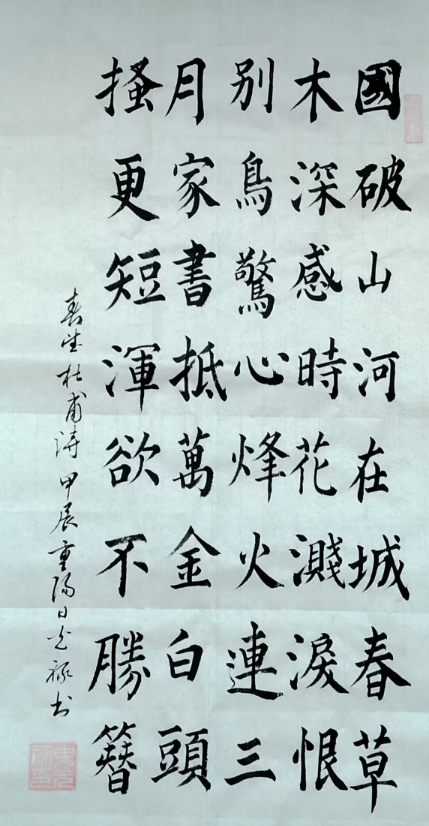 國破山河在城春草
木深感時花濺淚恨
別鳥驚心烽火連三
月家書抵萬金白頭
搔更短渾欲不勝簪
春望杜甫詩甲辰重陽日光祿书